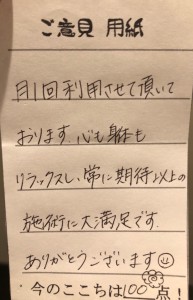 ご意見 用紙
月1回利用させて頂いて
おります。心も身体も
リラックスし、常に期待以上の
施術に大満足です。
ありがとうございます☺
今のここちは100点！